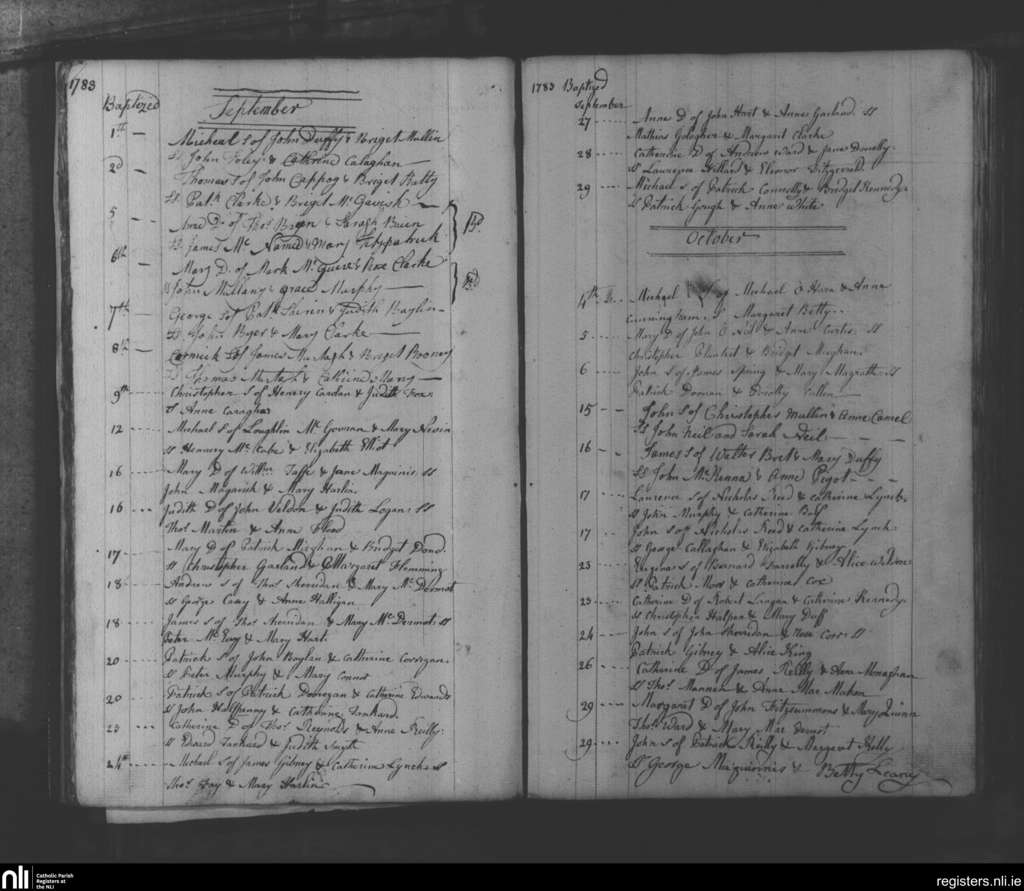 1783
Baptized
September
1th - Micheal S of John Duffy & Briget Mullin
Ss John Foley & Catherine Calaghan
2d - Thomas S of John Cappog & Briget Batty
Ss Patk Clarke & Briget Mc
5 - Anne D. of Thos Breen & Sarah Buien
Ss James Mc & Mary Fitzpatrick
6th - Mary D. of Mark McGuire & Rose Clarke
John & Grace Murphy
7th - George S of Patk & Judith
Ss John Byer & Mary Clarke
8th - Cormick S of James & Briget Rooney
Ss Thomas & Catherine
9th - Christopher S of Henery Cardan & Judith Fox
S Anne Caraghar
12 - Michael S of Loughlin Mc Gowran & Mary Nevin
Ss Hennery Mc Kabe & Elizabeth Elliot
16 - Mary D of Willm Taffe & Jane Maguinis Ss
John & Mary Harlin
16 - Judith D of John Veldon & Judith Logan: Ss
Thos Martin & Anne Flood
17 - Mary D of Patrick Mighan & Bridget Dowd.
Ss Christopher Garland & Margaret Flemming
18 - Andrew S of Thos Sheridan & Mary Mc Dermot
Ss George Casey & Anne Halligan
18 - James S of Thos Sheridan & Mary Mc Dermot: Ss
Peter Mc & Mary Hart
20 - Patrick S of John Boylan & Catherine Corrigan.
Ss Peter Murphy & Mary Connor
20 - Patrick S of Patrick Donegan & Catherine Edwards
Ss John Halfpenny & Catherine Tankard.
23 - Catherine D of Thos Reynolds & Anne Reilly:
Ss Tankard & Judith Smyth
24th - Michael S of James Gibney & Catherine Lynch: Ss
Thos Fay & Mary Harlin
1783 Baptized
September
27 - Anne D of John Hart & Anne Garland: Ss
Mathias Golagher & Margaret Clarke
28 - Catherine D of Andrew Ward & Jane Donelly.
Ss Laurence Hillard & Elinor Fitzgerald
29 - Michael S of Patrick Connelly & Bridget Kennedy:
Ss Patrick Gough & Anne White
October
4th - Michael of Michael O Hara & Anne
Cunningham. S Margaret Betty
5 - Mary D of John O Neil & Anne Curtis. Ss
Christopher & Bridget Meighan
6 - John S of James Spring & Mary Magrath. Ss
Patrick & Dorothy Cullen
15 - John S of Christopher Mullin & Anne Camel
Ss John Neil and Sarah Neil
16 - James S of Walter Bret & Mary Duffy
Ss John McKenna & Anne Pegot
17 - Laurence S of Nicholas Reed & Catherine Lynch.
Ss John Murphy & Catherine
17 - John S of Nicholas Reed & Catherine Lynch:
Ss George Callaghan & Elizabeth Gibney
23 - S of Bernard Farrelly & Alice
Ss Patrick & Catherine Cox
23 - Catherine D of Robert Langan & Catherine Kennedy.
Ss Christopher Halpen & Mary Duff
24 - John S of John Sheridan & Rose Corr: Ss
Patrick Gibney & Alice King
26 - Catherine D of James Reilly & Anne Monaghan
Ss Thos Mannen & Anne Mac Mahon
29 - Margaret D of John Fitzsimmons & Mary Quinn
Thos Ward & Mary Mac Dermot
29 - John S of Patrick Reilly & Margaret Kelly
Ss George Maguinnis & Betty Leany
nli Catholic Parish
Registers at
the NLI
registers.nli.ie